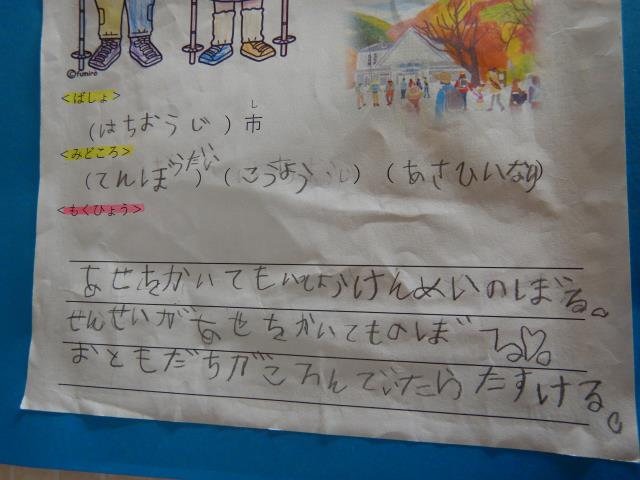 ©fumira
<ばしょ>
(はちおうじ)市
し
<みどころ>
(てんぼうだい)(こうよう)(あさひいなり)
<もくひょう>
あせをかいてもいっしょうけんめいのぼる。
せんせいがあせをかいてものぼってる♡。
おともだちがころんでいたらたすける。